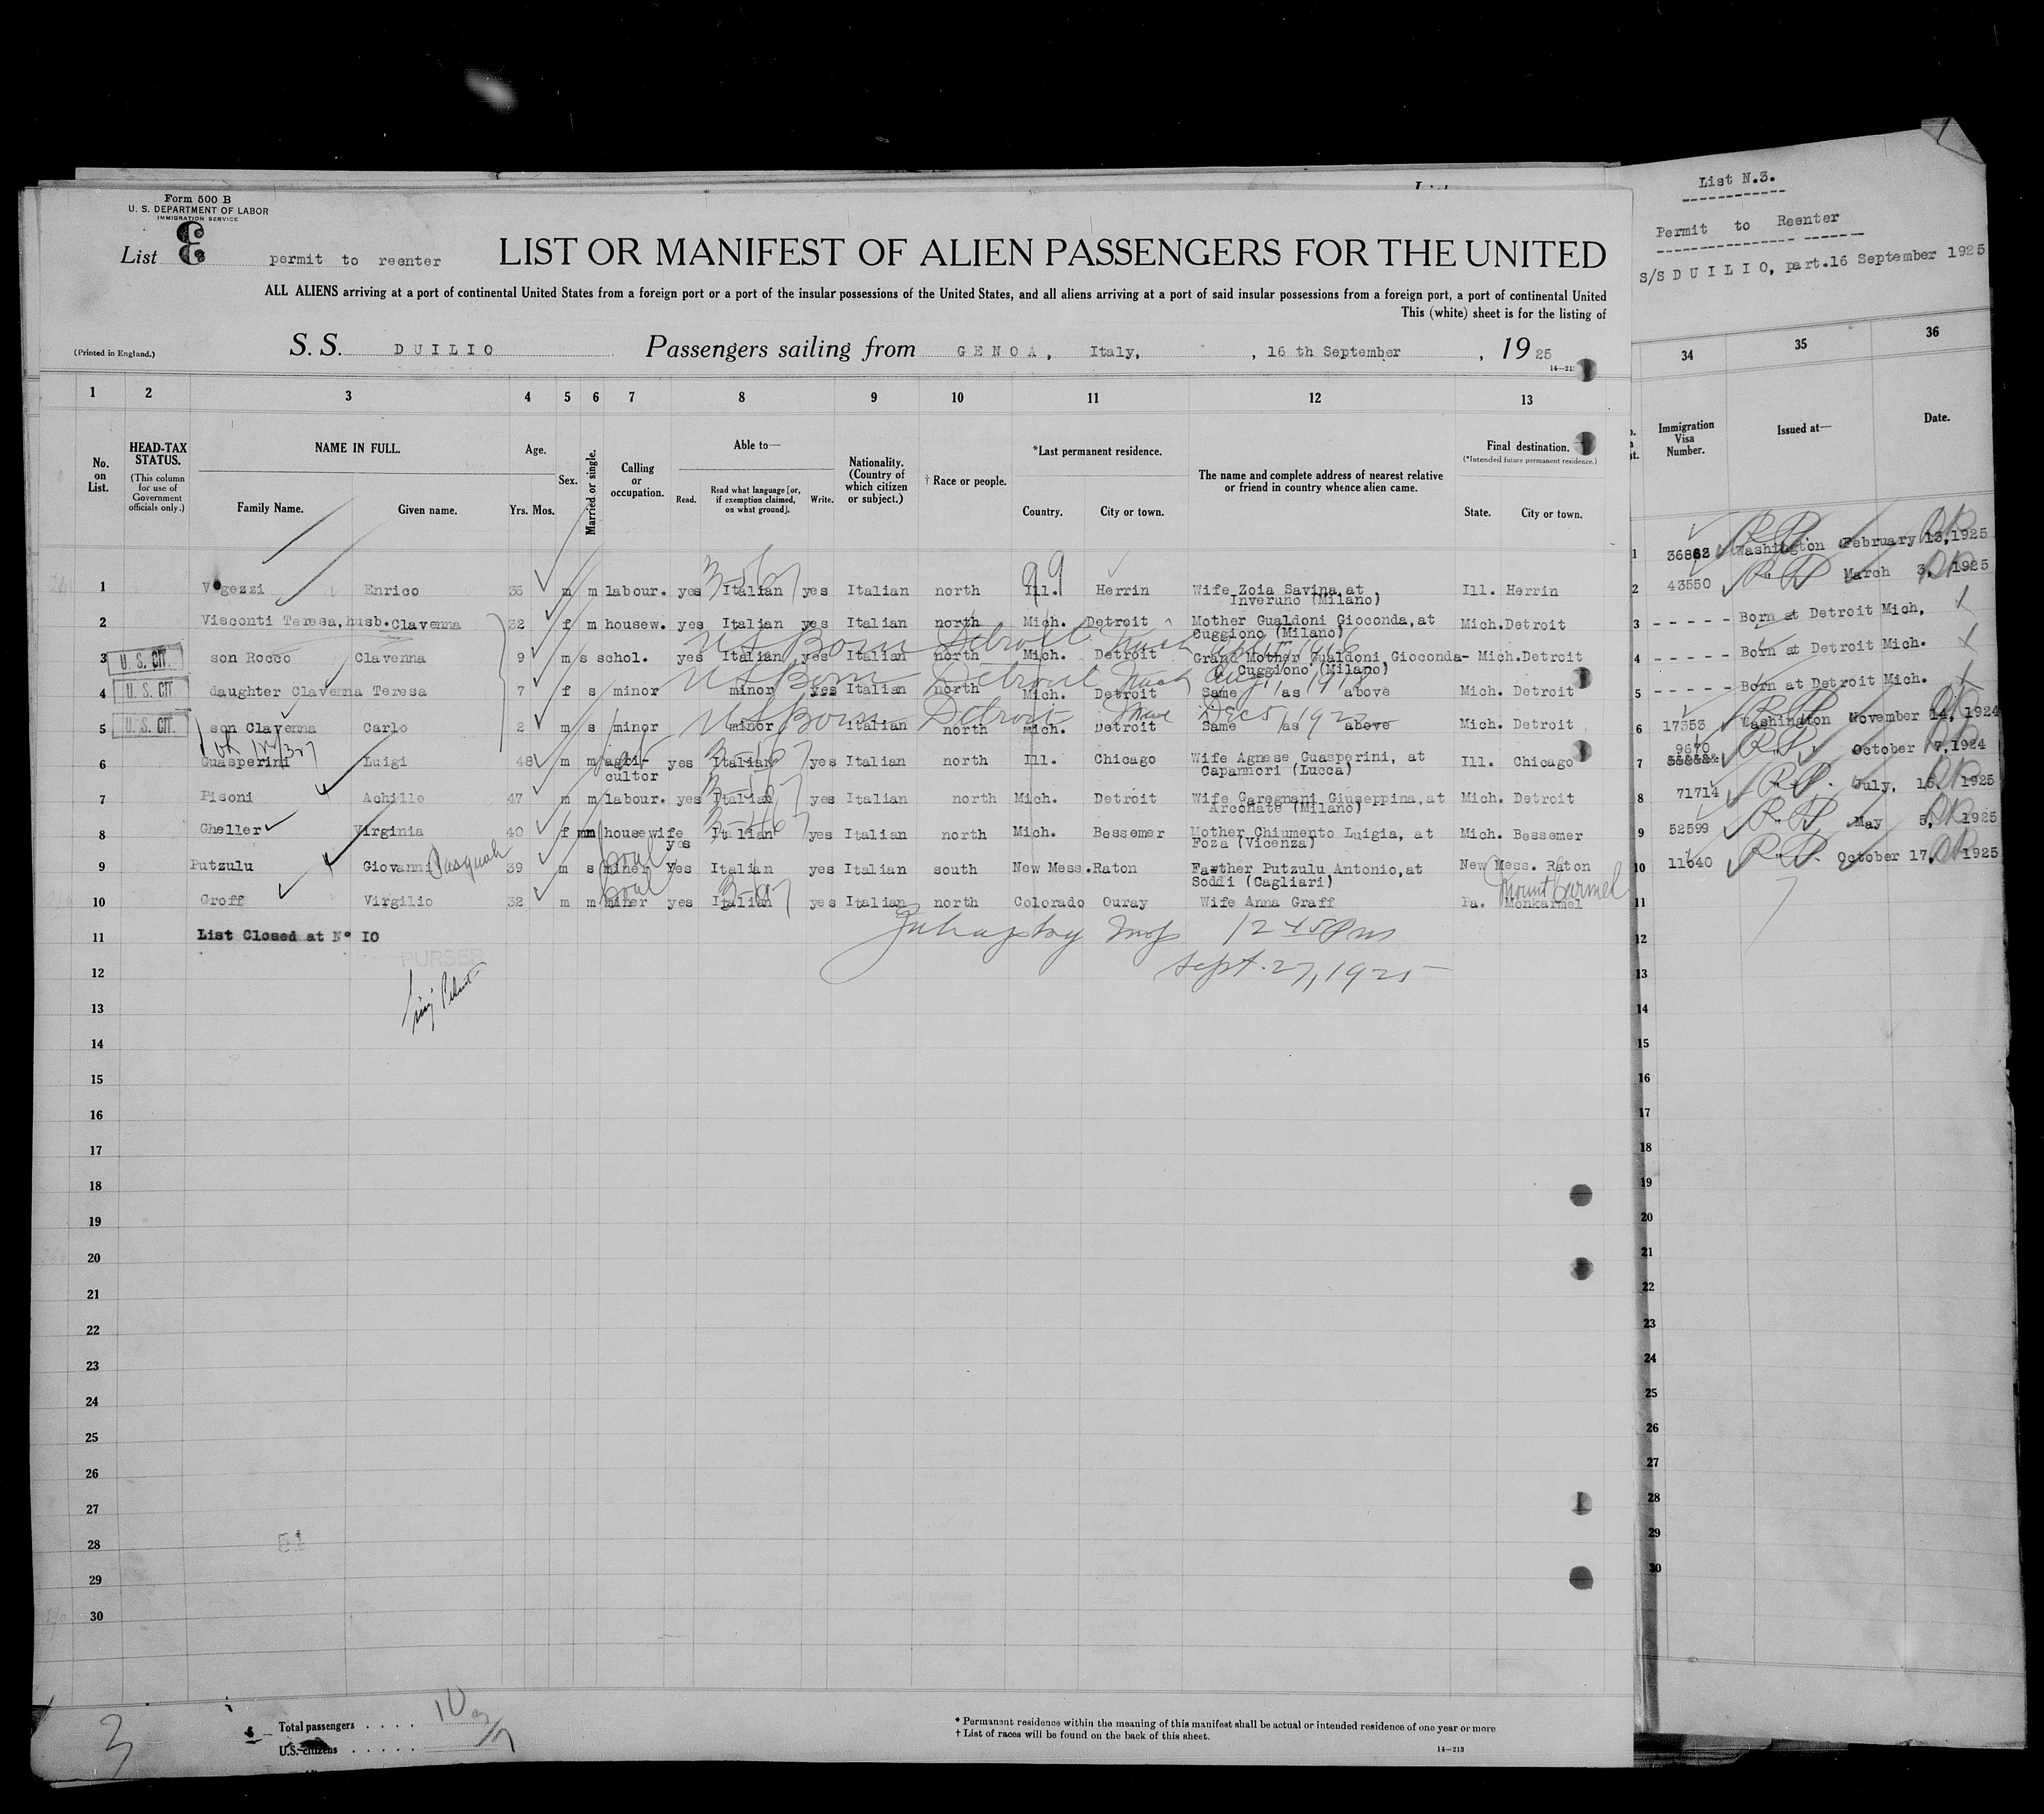 Form 500 B
U. S. DEPARTMENT OF LABOR
IMMIGRATION SERVICE
List 3 permit to reenter
LIST OR MANIFEST OF ALIEN PASSENGERS FOR THE UNITED
ALL ALIENS arriving at a port of continental United States from a foreign port or a port of the insular possessions of the United States, and all aliens arriving at a port of said insular possessions from a foreign port, a port of continental United
This (white) sheet is for the listing of
(Printed in England.)
S. S. DUILIO Passengers sailing from GENOA, Italy, , 16 th September , 19 25
1 2 3 4 5 6 7 8 9 10 11 12 13
No. on List.
HEAD-TAX STATUS.
(This column for use of Government officials only.)
NAME IN FULL.
Family Name. Given name.
Age.
Yrs. Mos.
Sex.
Married or single.
Calling or occupation.
Able to—
Read. Read what language [or, if exemption claimed, on what ground]. Write.
Nationality. (Country of which citizen or subject.)
† Race or people.
*Last permanent residence.
Country. City or town.
The name and complete address of nearest relative or friend in country whence alien came.
Final destination.
(*Intended future permanent residence.)
State. City or town.
1 Vegezzi Enrico 36 m m labour. yes Italian yes Italian north Ill. Herrin Wife Zoia Savina, at Ill. Herrin
Inveruno (Milano)
2 Visconti Teresa, husb. Clavenna 32 f m housew. yes Italian yes Italian north Mich. Detroit Mother Gualdoni Gioconda, at Mich. Detroit
Cuggiono (Milano)
US Born Detroit Mich April 1916
3 U. S. CIT. son Rocco Clavenna 9 m s schol. yes Italian yes Italian north Mich. Detroit Grand Mother Gualdoni Gioconda- Mich. Detroit
Cuggiono (Milano)
US Born Detroit Mich Aug 1, 1918
4 U. S. CIT. daughter Clavenna Teresa 7 f s minor minor yes Italian north Mich. Detroit Same as above Mich. Detroit
US Born Detroit Dec 5, 1922
5 U. S. CIT. son Clavenna Carlo 2 m s minor minor Italian north Mich. Detroit Same as above Mich. Detroit
6 Guasperini Luigi 48 m m agri- yes Italian yes Italian north Ill. Chicago Wife Agnese Guasperini, at Ill. Chicago
cultor Capannori (Lucca)
7 Pisoni Achille 47 m m labour. yes Italian yes Italian north Mich. Detroit Wife Garegnani Giuseppina, at Mich. Detroit
Arconate (Milano)
8 Gheller Virginia 40 f m housewife yes Italian yes Italian north Mich. Bessemer Mother Chiumento Luigia, at Mich. Bessemer
Foza (Vicenza)
9 Putzulu Giovanni Pasquale 39 m s coal miner yes Italian yes Italian south New Mess. Raton Farther Putzulu Antonio, at New Mess. Raton
Soddi (Cagliari)
10 Groff Virgilio 32 m m coal miner yes Italian yes Italian north Colorado Ouray Wife Anna Graff Pa. Monkarmel
Mount Carmel
11 List Closed at N° 10
12 45 Pm
PURSER
12
Sept. 27, 1925
13
14
15
16
17
18
19
20
21
22
23
24
25
26
27
28
51
29
30
3
Total passengers . . . . 10
U.S. citizens . . . . . .
* Permanent residence within the meaning of this manifest shall be actual or intended residence of one year or more
† List of races will be found on the back of this sheet.
14—213
List N.3.
Permit to Reenter
S/S DUILIO, part.16 September 1925
34 35 36
Immigration Visa Number.
Issued at—
Date.
1 36862 Washington February 13, 1925
2 43550 " March 3, 1925
3 - - - - - Born at Detroit Mich,
4 - - - - - Born at Detroit Mich.
5 - - - - - Born at Detroit Mich.
6 17353 Washington November 14, 1924
7 9670 " October 7, 1924
8 71714 " July, 15, 1925
9 52599 " May 5, 1925
10 11640 " October 17, 1925
11
12
13
14
15
16
17
18
19
20
21
22
23
24
25
26
27
28
29
30